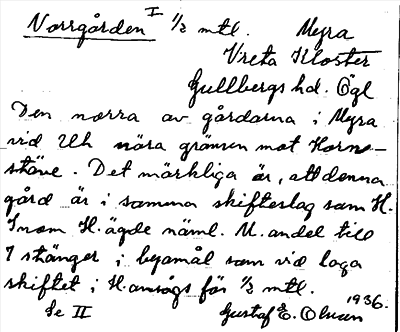 Norrgården I 1/2 mtl. Myra
Vreta Kloster
Gullbergs hd. Ögl
Den norra av gårdarna i Myra
vid Uh nära gränsen mot Horns-
stäve. Det märkliga är, att denna
gård är i samma skifteslag som H.
Inom H. ägde näml. M. andel till
7 stänger i byamål som vid laga
skiftet i H. ansågs för 1/2 mtl.
Se II Gustaf E. Olsson 1936.